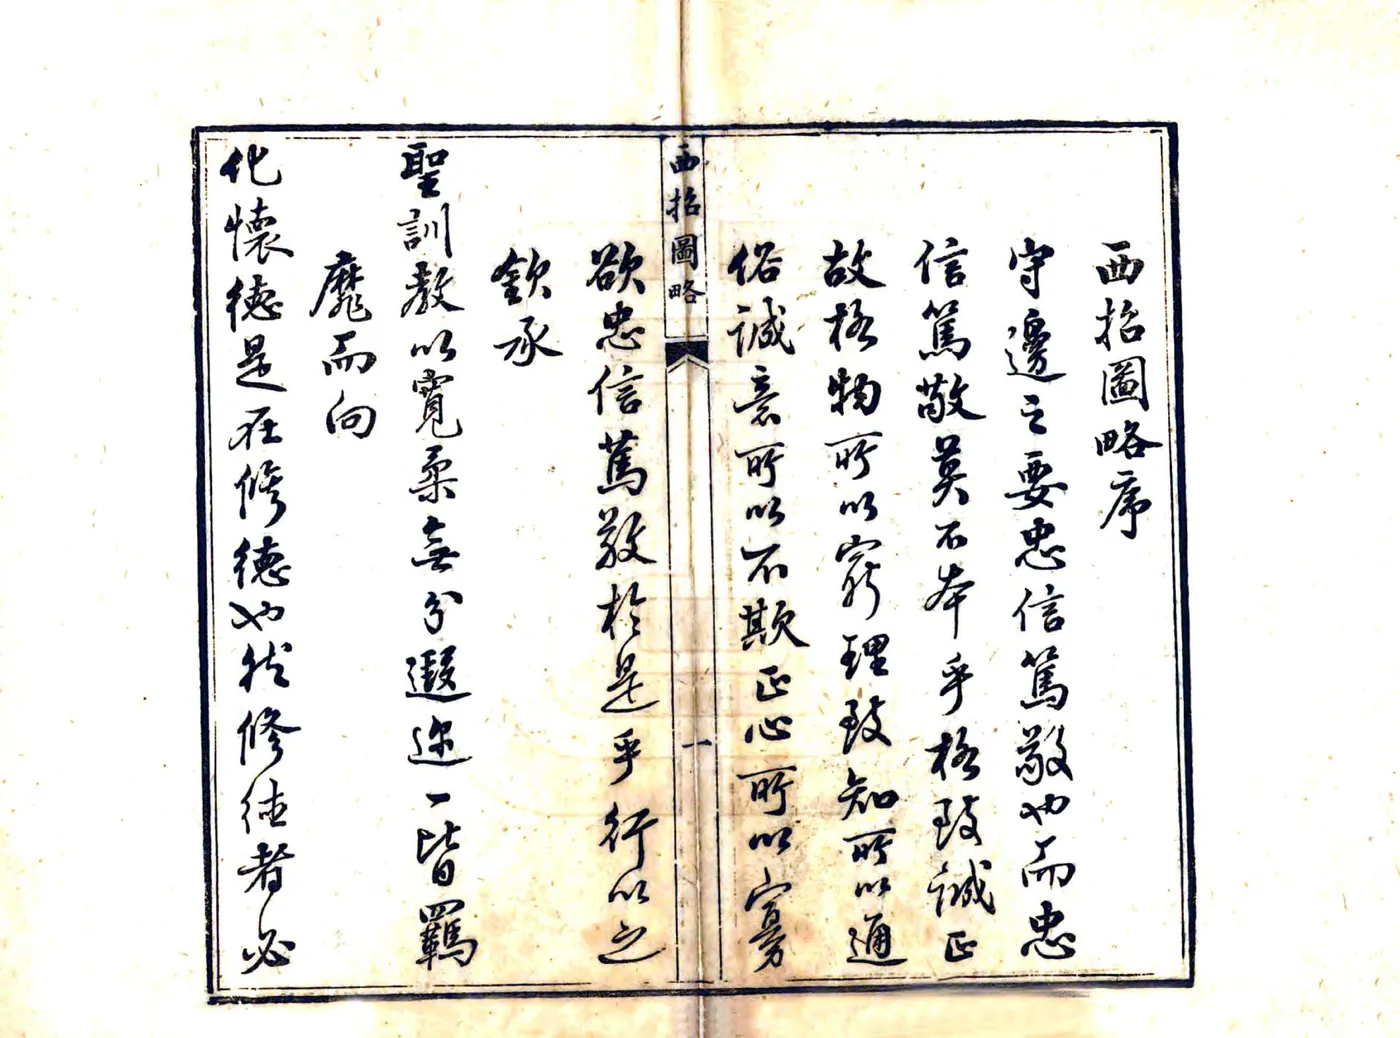 西招圖略序
守邊之要忠信篤敬也而忠
信篤敬莫不本乎格致誠正
故格物所以窮理致知所以通
俗誠意所以不欺正心所以寡
西招圖略
一
欲忠信篤敬於是乎行以之
欽承
聖訓教以寬柔無分遐迩一皆羈
靡而向
化懷德是在修德也然修德者必